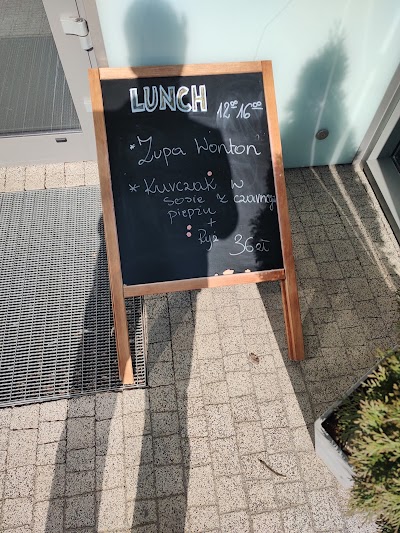 LUNCH 12⁰⁰ 16⁰⁰
* Zupa Wonton
* Kurczak w
sosie z czarnego
pieprzu
+
Ryż 36 zł